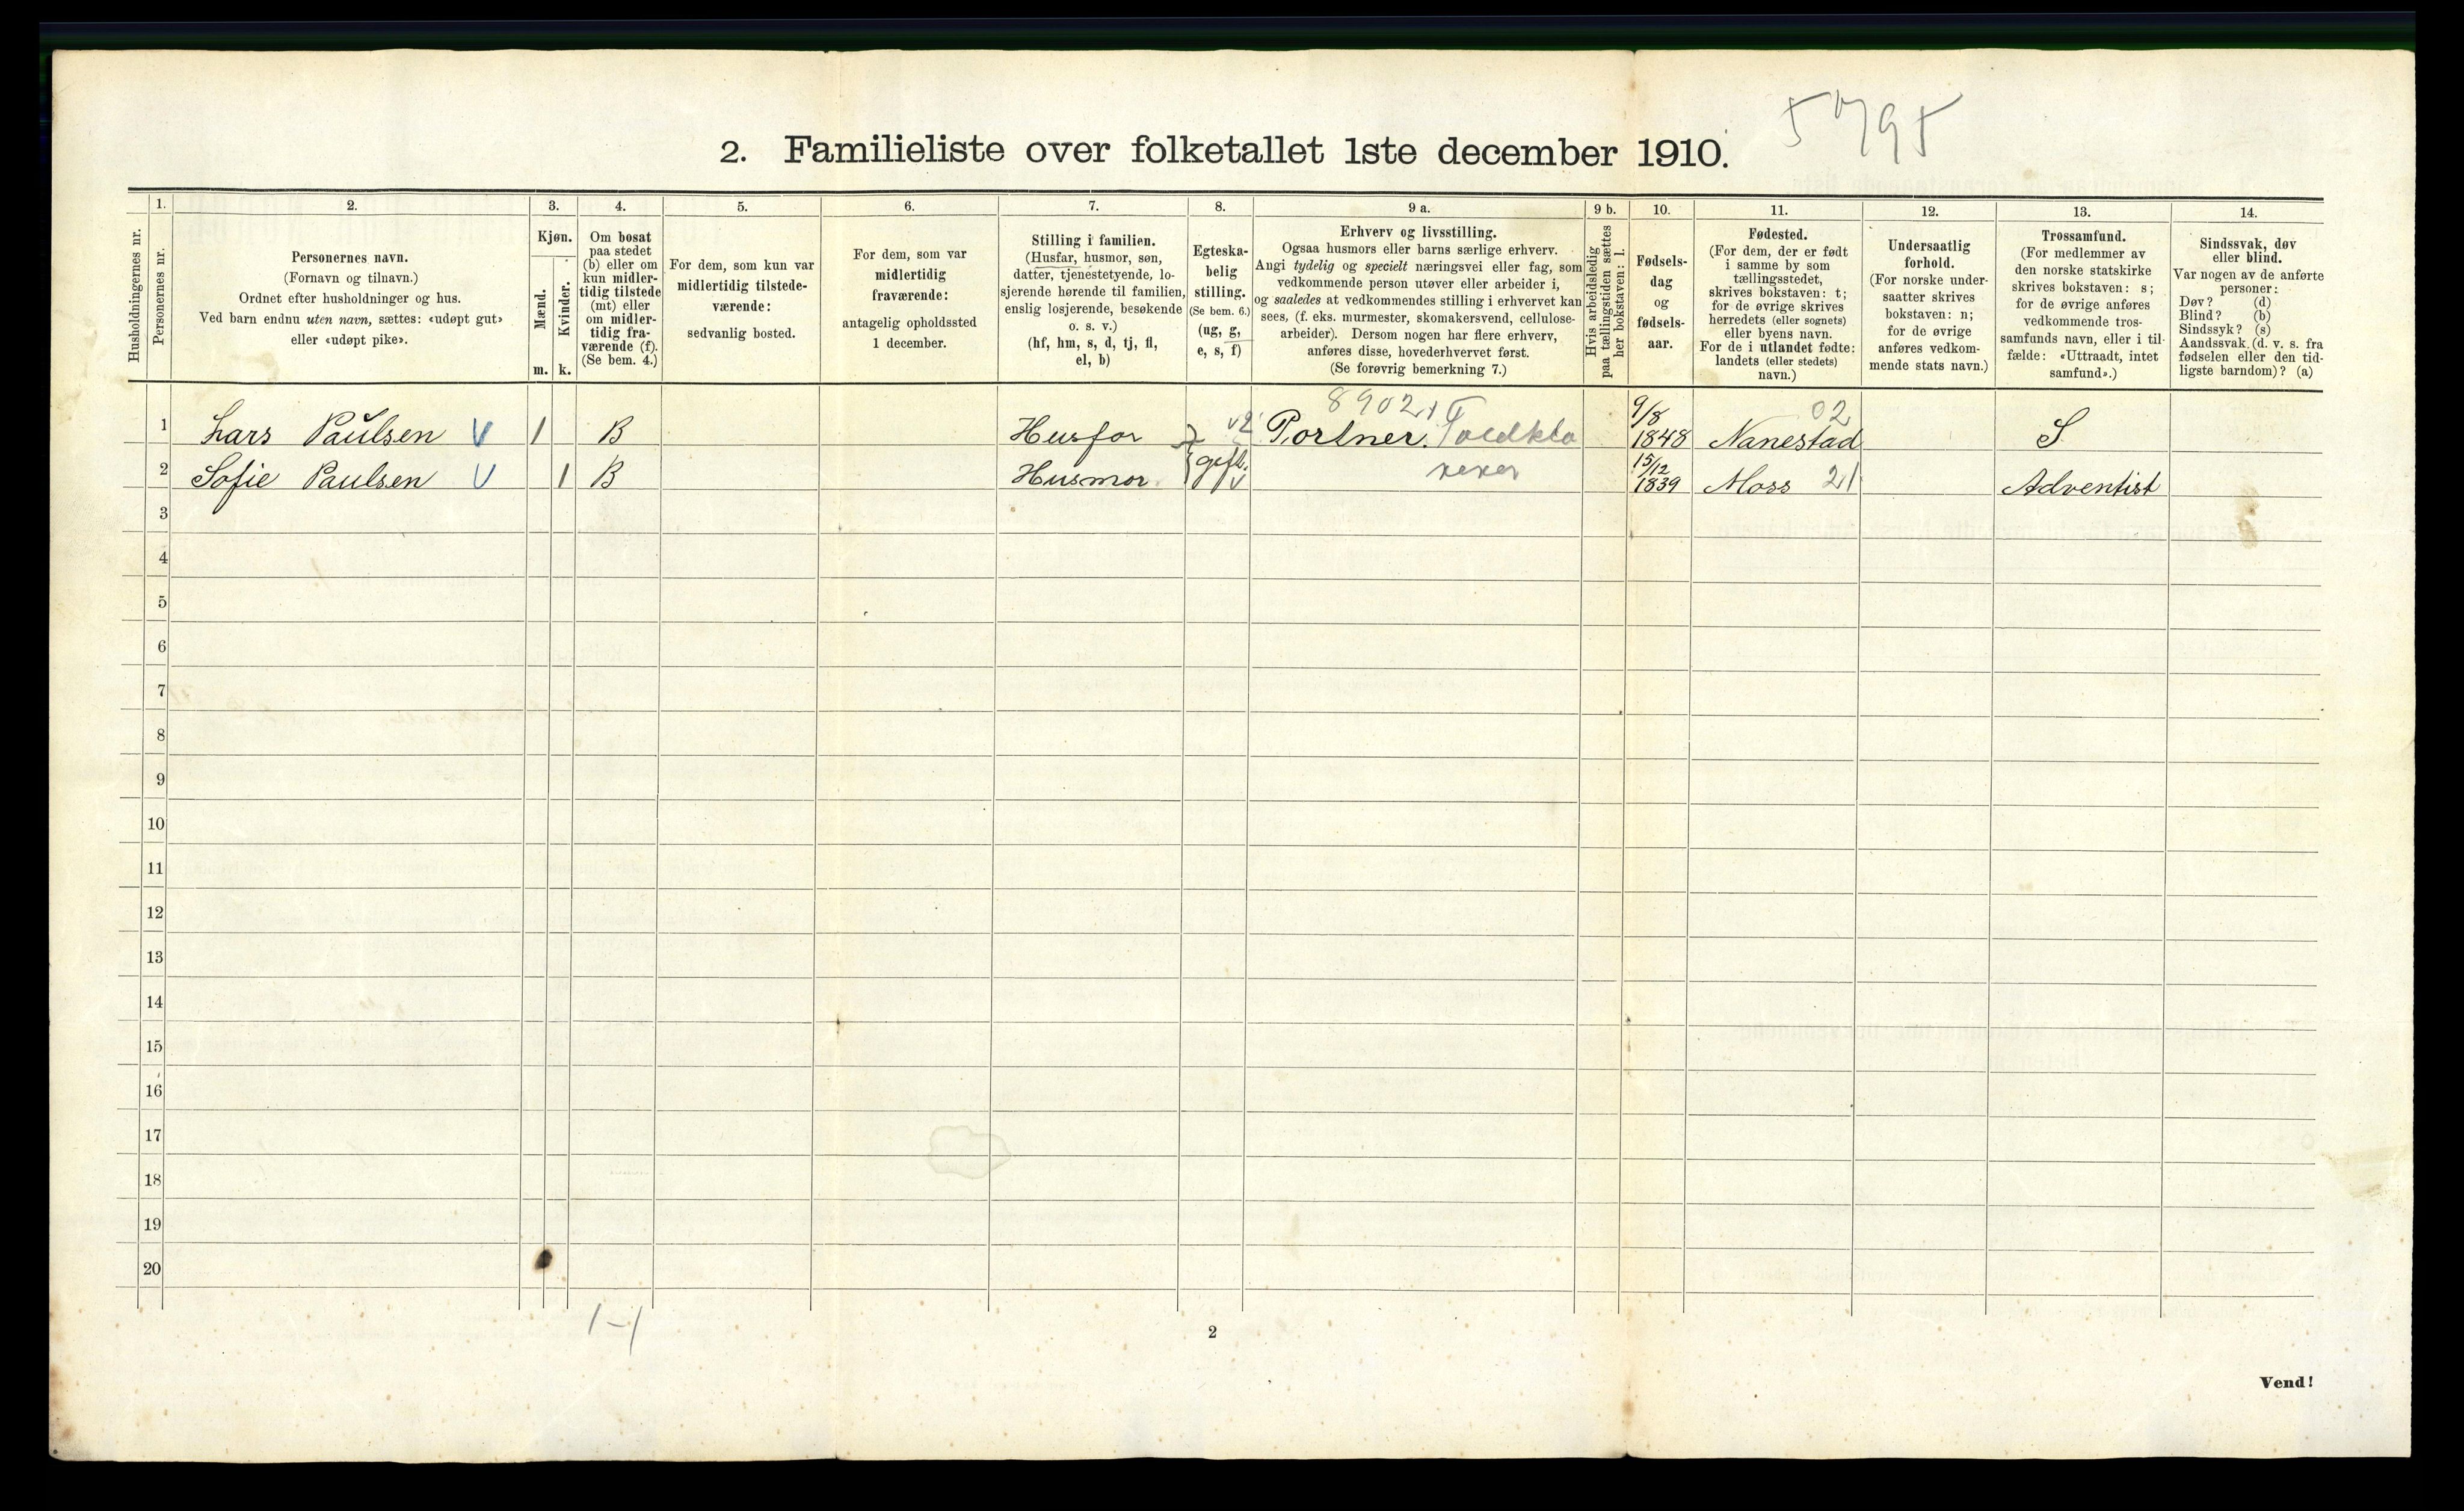 5795
2. Familieliste over folketallet 1ste december 1910.
Husholdningernes nr.
1.
Personernes nr.
2.
Personernes navn.
(Fornavn og tilnavn.)
Ordnet efter husholdninger og hus.
Ved barn endnu uten navn, sættes: «udøpt gut»
eller «udøpt pike».
3.
Kjøn.
Mænd.
Kvinder.
m. k.
4.
Om bosat
paa stedet
(b) eller om
kun midler-
tidig tilstede
(mt) eller
om midler-
tidig fra-
værende (f).
(Se bem. 4.)
5.
For dem, som kun var
midlertidig tilstede-
værende:
sedvanlig bosted.
6.
For dem, som var
midlertidig
fraværende:
antagelig opholdssted
1 december.
7.
Stilling i familien.
(Husfar, husmor, søn,
datter, tjenestetyende, lo-
sjerende hørende til familien,
enslig losjerende, besøkende
o. s. v.)
(hf, hm, s, d, tj, fl,
el, b)
8.
Egteska-
belig
stilling.
(Se bem. 6.)
(ug, g,
e, s, f)
9 a.
Erhverv og livsstilling.
Ogsaa husmors eller barns særlige erhverv.
Angi tydelig og specielt næringsvei eller fag, som
vedkommende person utøver eller arbeider i,
og saaledes at vedkommendes stilling i erhvervet kan
sees, (f. eks. murmester, skomakersvend, cellulose-
arbeider). Dersom nogen har flere erhverv,
anføres disse, hovederhvervet først.
(Se forøvrig bemerkning 7.)
9 b.
Hvis arbeidsledig
paa tællingstiden sættes
her bokstaven: l.
10.
Fødsels-
dag
og
fødsels-
aar.
11.
Fødested.
(For dem, der er født
i samme by som
tællingsstedet,
skrives bokstaven: t;
for de øvrige skrives
herredets (eller sognets)
eller byens navn.
For de i utlandet fødte:
landets (eller stedets)
navn.)
12.
Undersaatlig
forhold.
(For norske under-
saatter skrives
bokstaven: n;
for de øvrige
anføres vedkom-
mende stats navn.)
13.
Trossamfund.
(For medlemmer av
den norske statskirke
skrives bokstaven: s;
for de øvrige anføres
vedkommende tros-
samfunds navn, eller i til-
fælde: «Uttraadt, intet
samfund».)
14.
Sindssvak, døv
eller blind.
Var nogen av de anførte
personer:
Døv? (d)
Blind? (b)
Sindssyk? (s)
Aandssvak (d. v. s. fra
fødselen eller den tid-
ligste barndom)? (a)
8902
1 Lars Paulsen V 1 B Husfar Portner. 9/8 1848 Nanestad 02 S
2 Sofie Paulsen V 1 B Husmor gift. 15/12 1839 Moss 21 Adventist
3
4
5
6
7
8
9
10
11
12
13
14
15
16
17
18
19
20
1-1
2
Vend!